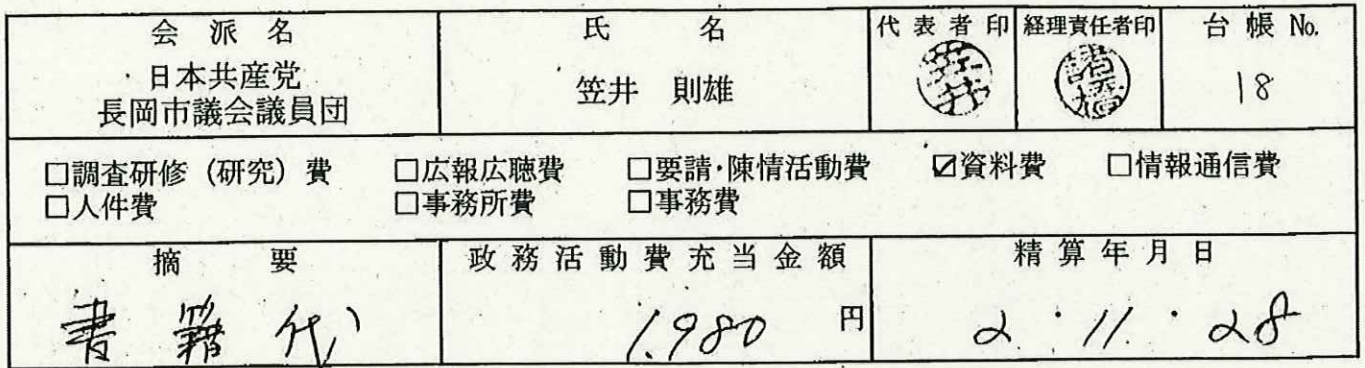 会派名 氏名 代表者印 経理責任者印 台帳No.
日本共産党
長岡市議会議員団 笠井 則雄 笠井 諸橋 18
□調査研修（研究）費 □広報広聴費 □要請・陳情活動費 ☑資料費 □情報通信費
□人件費 □事務所費 □事務費
摘要 政務活動費充当金額 精算年月日
書籍代 1,980 円 2・11・28